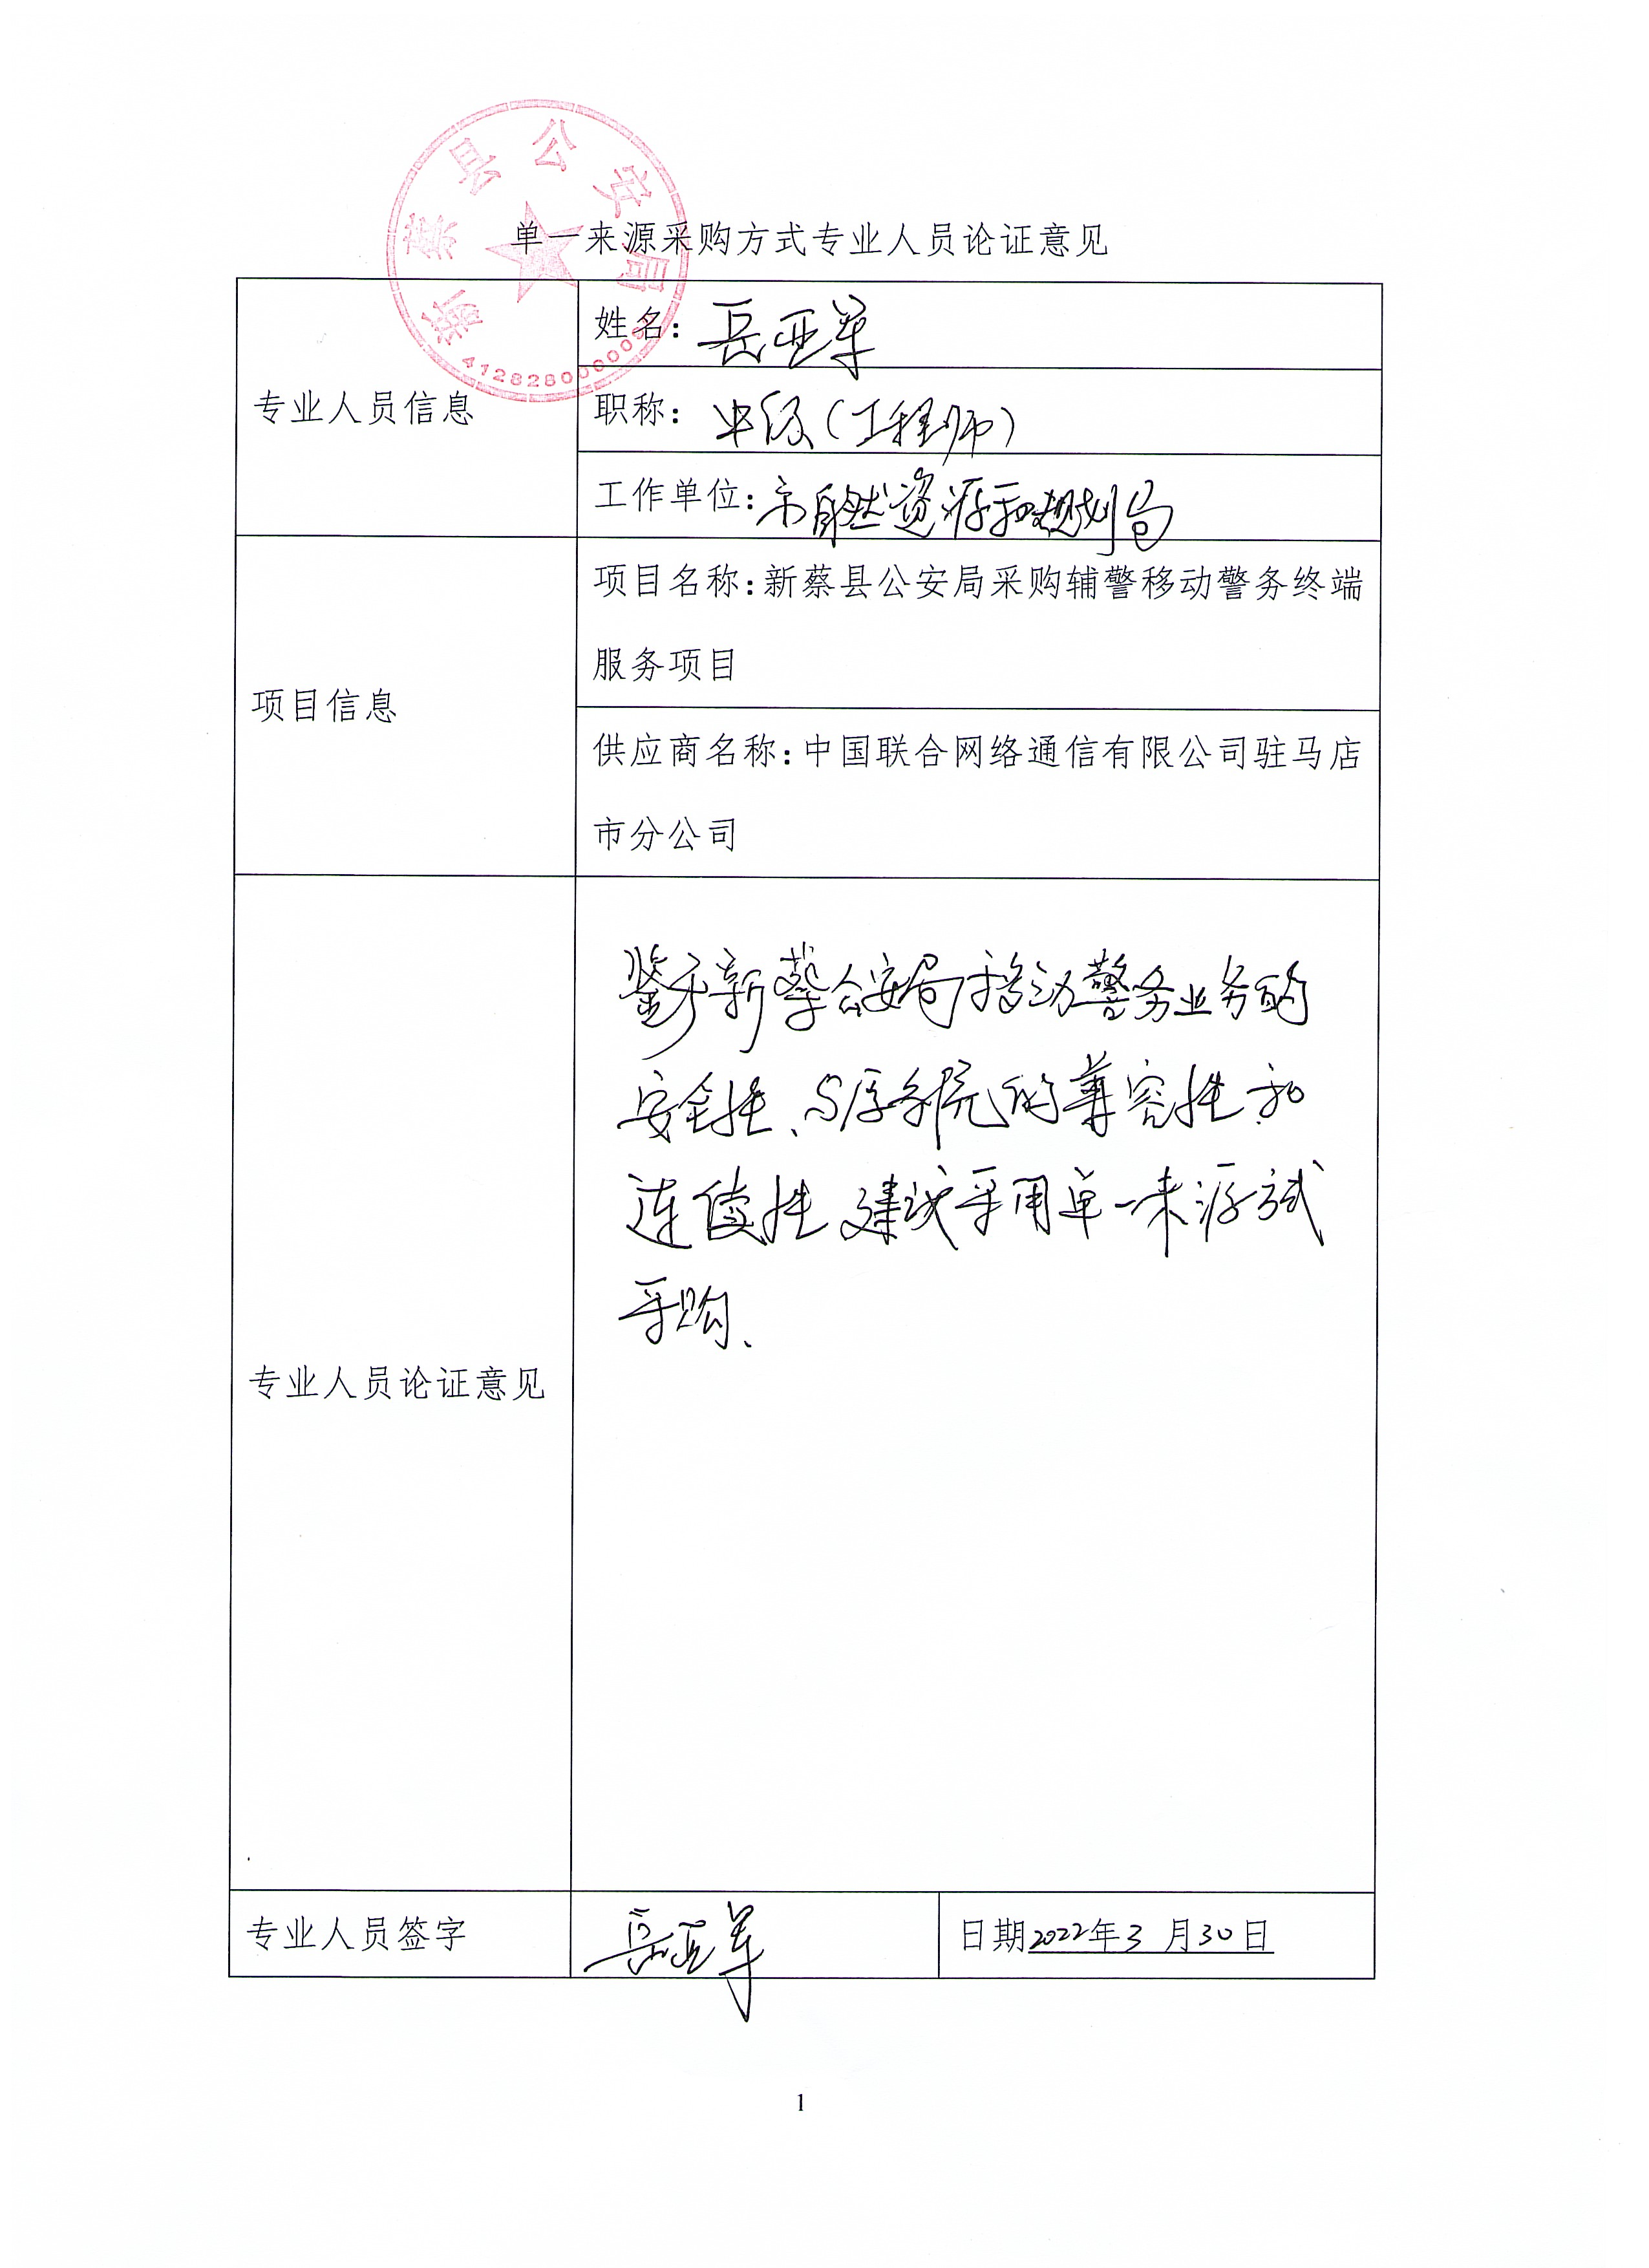 新蔡县公安局
单一来源采购方式专业人员论证意见
专业人员信息
姓名：岳亚军
职称：中级（工程师）
工作单位：市自然资源和规划局
项目信息
项目名称：新蔡县公安局采购辅警移动警务终端
服务项目
供应商名称：中国联合网络通信有限公司驻马店
市分公司
专业人员论证意见
鉴于新蔡公安局移动警务业务的
安全性、与原系统的兼容性和
连续性 建议采用单一来源方式
采购、
专业人员签字
岳亚军
日期2022年3月30日
1